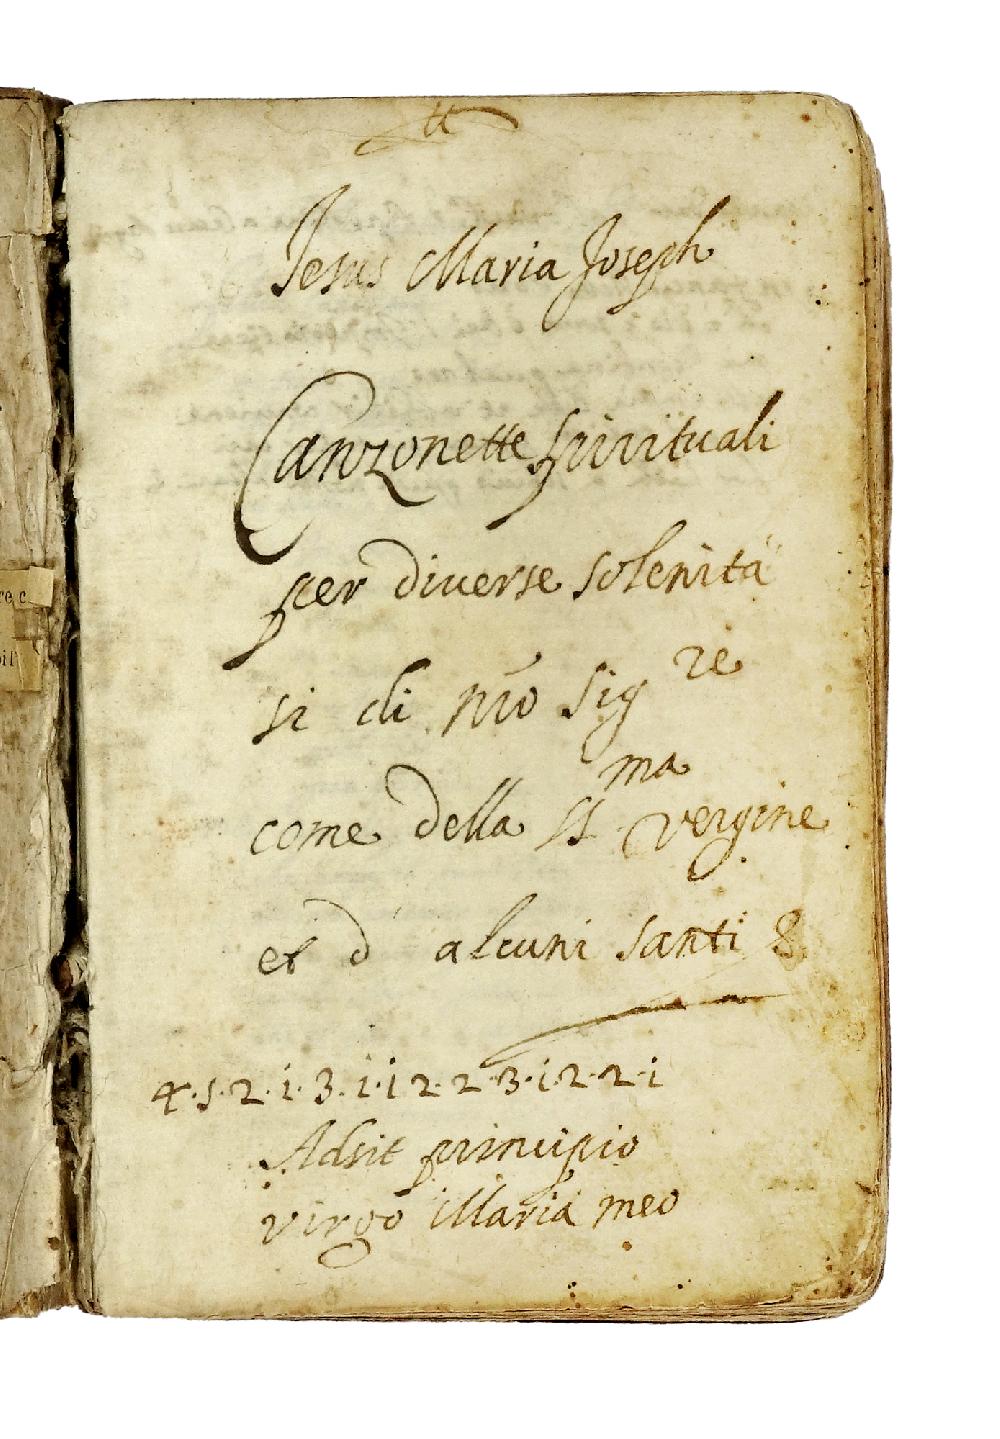 Jesus Maria Joseph
Canzonette spirituali
per diverse solenità
si di nr̃o Sig re
come della SS ma vergine
et d' alcuni santi &
4·5·2·1·3·1·1 2·2·3·1·2·2·1
Adsit principio
virgo Maria meo